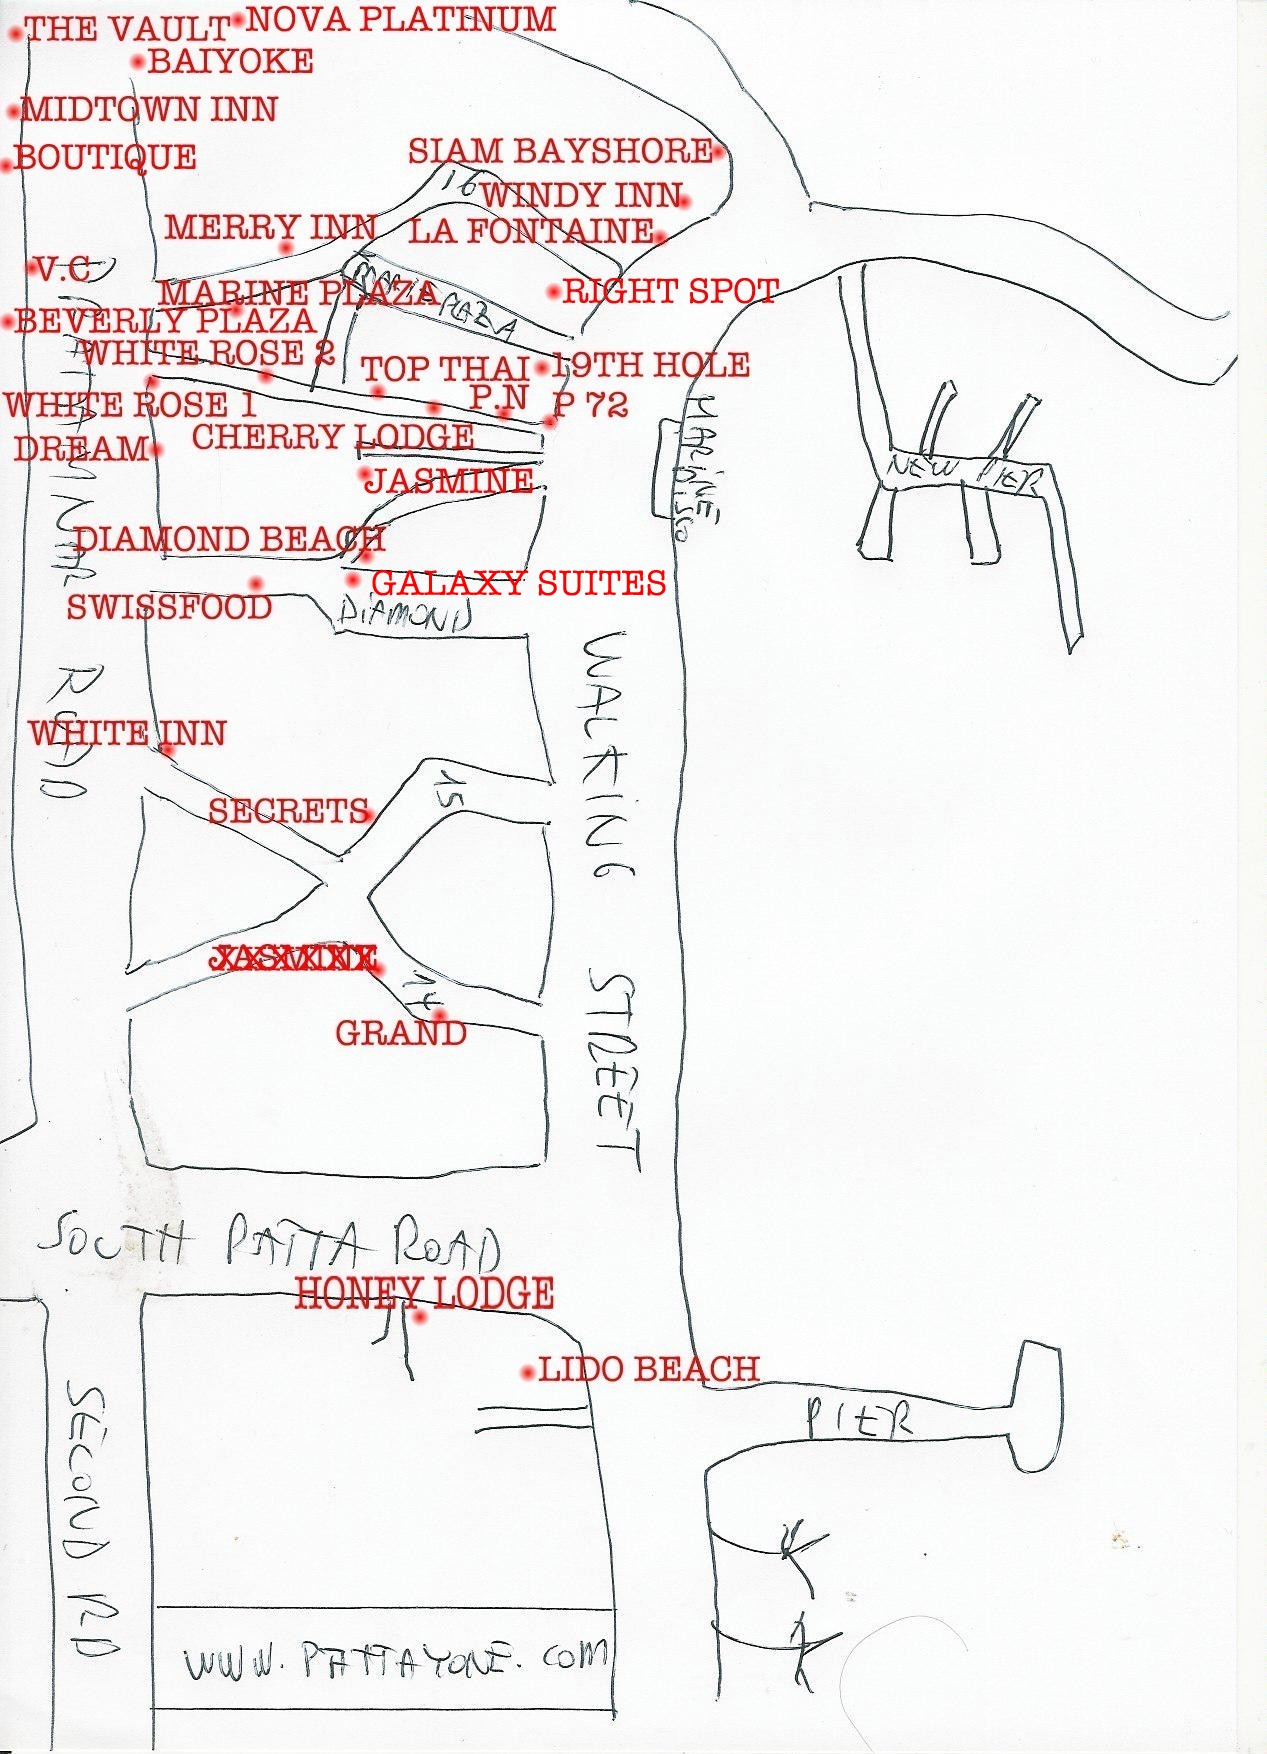 NOVA PLATINUM
THE VAULT
BAIYOKE
MIDTOWN INN
BOUTIQUE
SIAM BAYSHORE
16
WINDY INN
MERRY INN
LA FONTAINE
V.C
RIGHT SPOT
MARINE PLAZA
BEVERLY PLAZA
WHITE ROSE 2
19TH HOLE
TOP THAI
P.N
P 72
WHITE ROSE 1
CHERRY LODGE
DREAM
MARINE
DISCO
NEW PIER
JASMINE
DIAMOND BEACH
GALAXY SUITES
SWISSFOOD
DIAMOND
ROAD
WHITE INN
15
SECRETS
WALKING STREET
JASMINE
14
GRAND
SOUTH PATTA ROAD
HONEY LODGE
LIDO BEACH
PIER
SECOND RD
WWW.PATTAYONE.COM